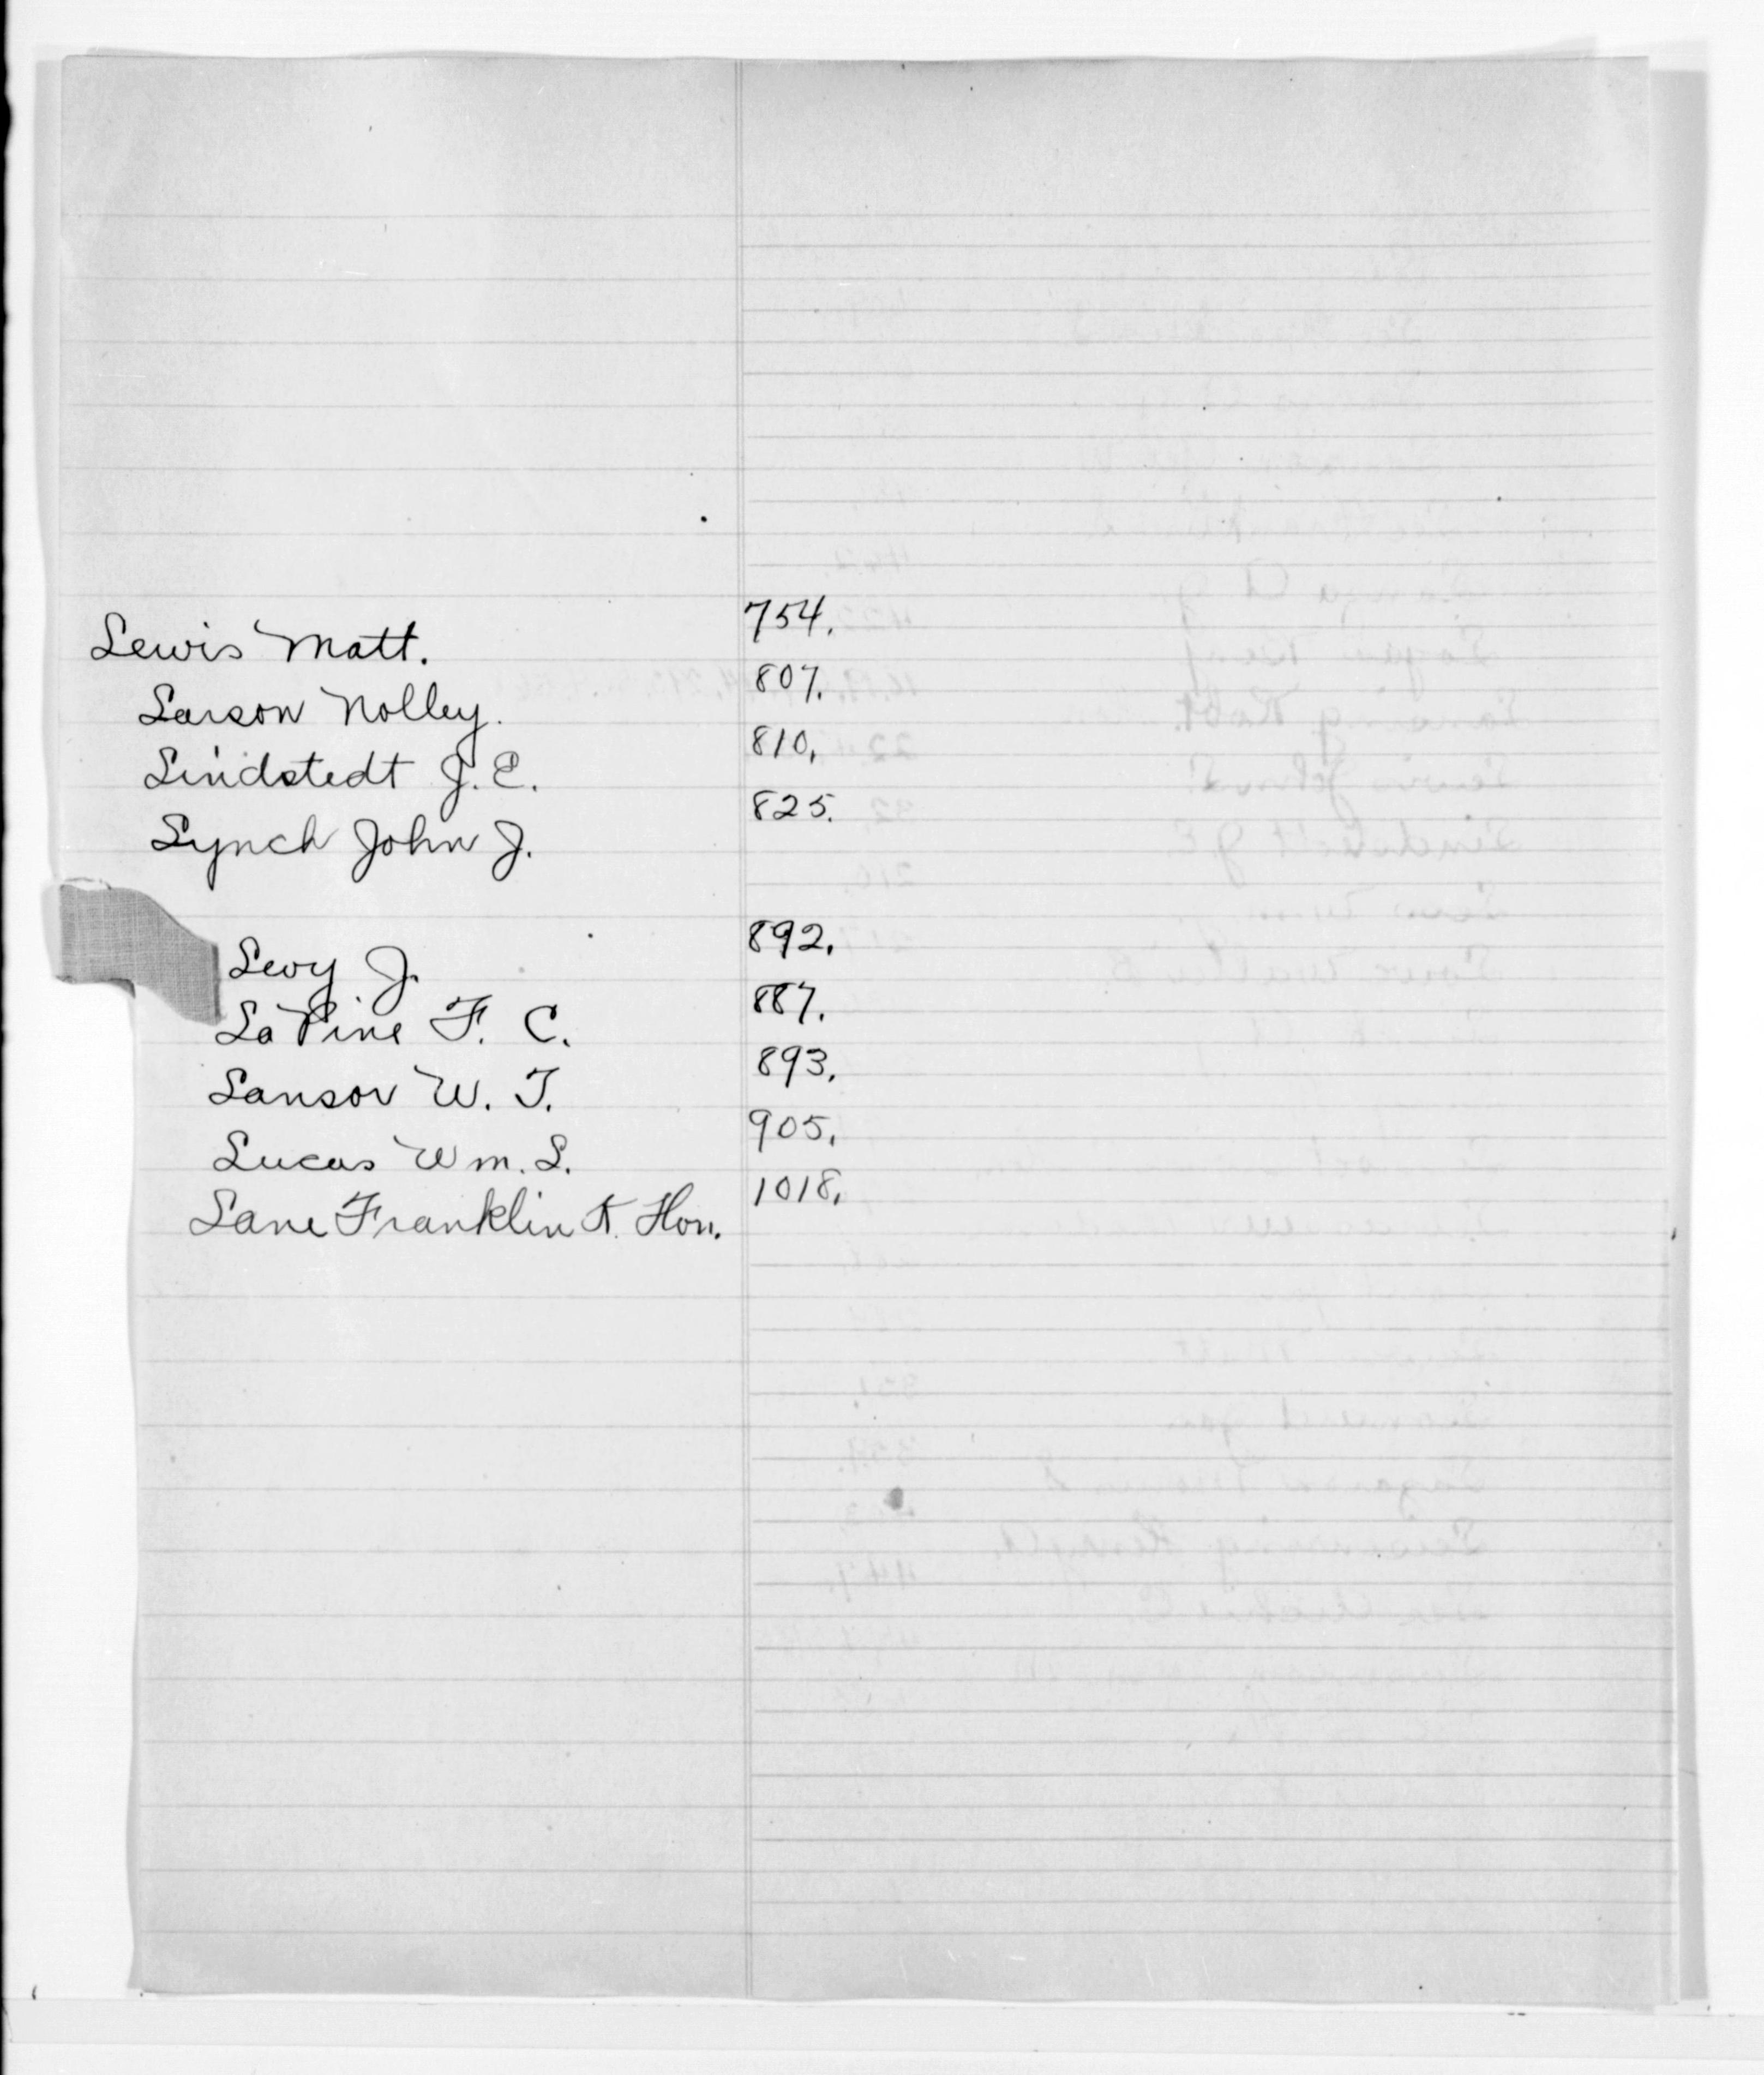 Lewis Matt. 754.
Larson Nolley. 807.
Lindstedt J. E. 810.
Lynch John J. 825.
Levy J. 892.
La Pine F. C. 887.
Lansor W. T. 893.
Lucas Wm. L. 905.
Lane Franklin K. Hon. 1018.